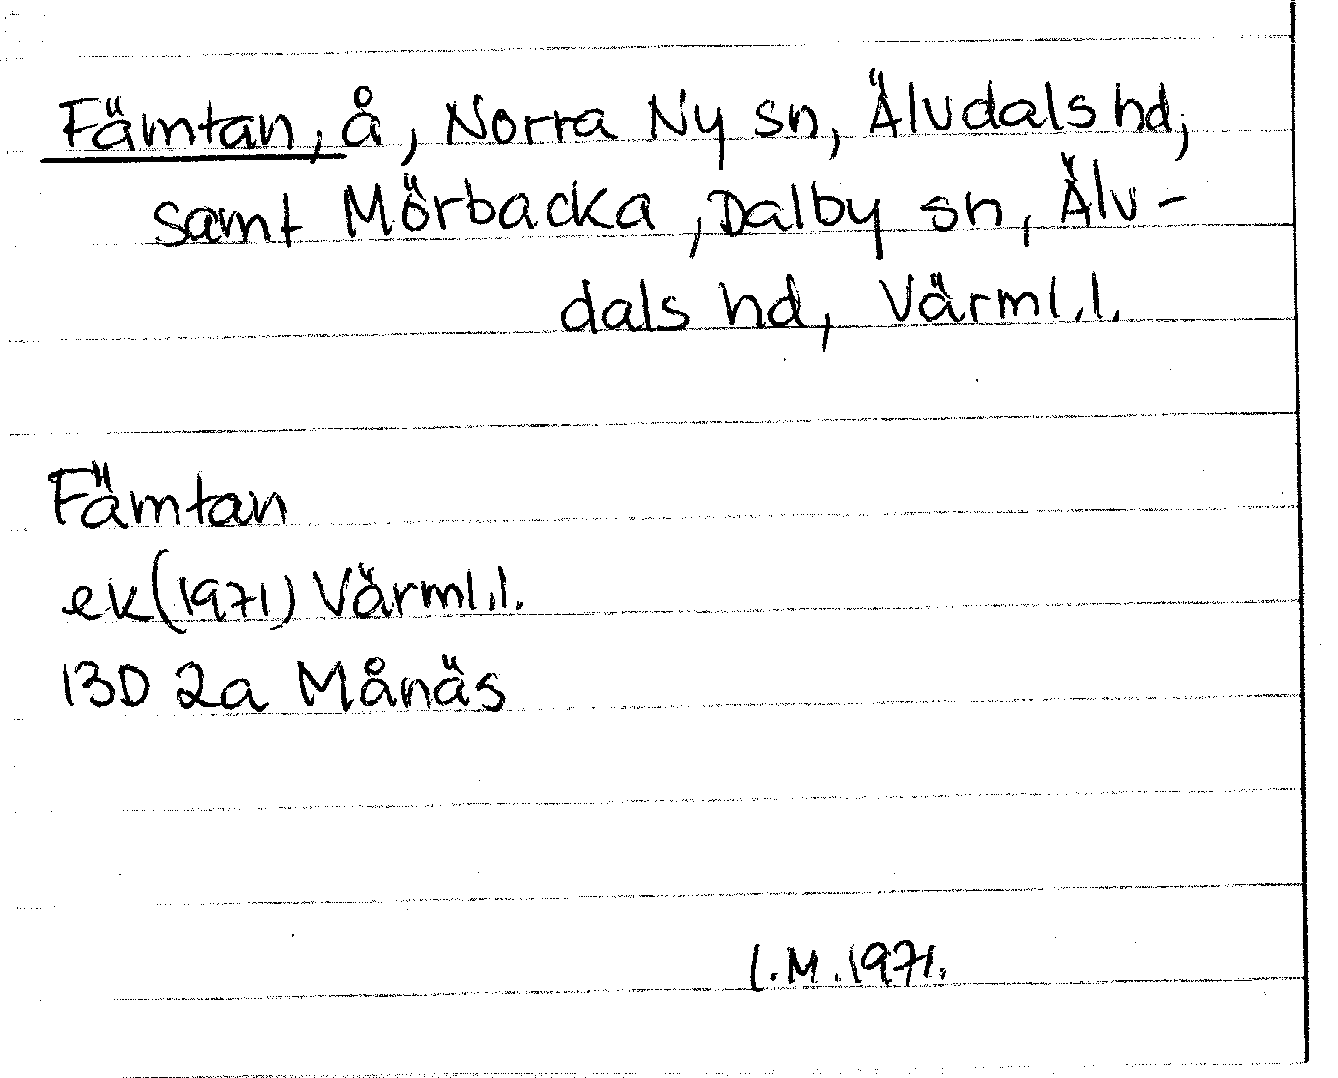 Fämtan, å, Norra Ny sn, Älvdals hd,
samt Mörbacka, Dalby sn, Älv-
dals hd, Värml.l.
Fämtan
ek (1971) Värml.l.
13D 2a Månäs
I.M. 1971.